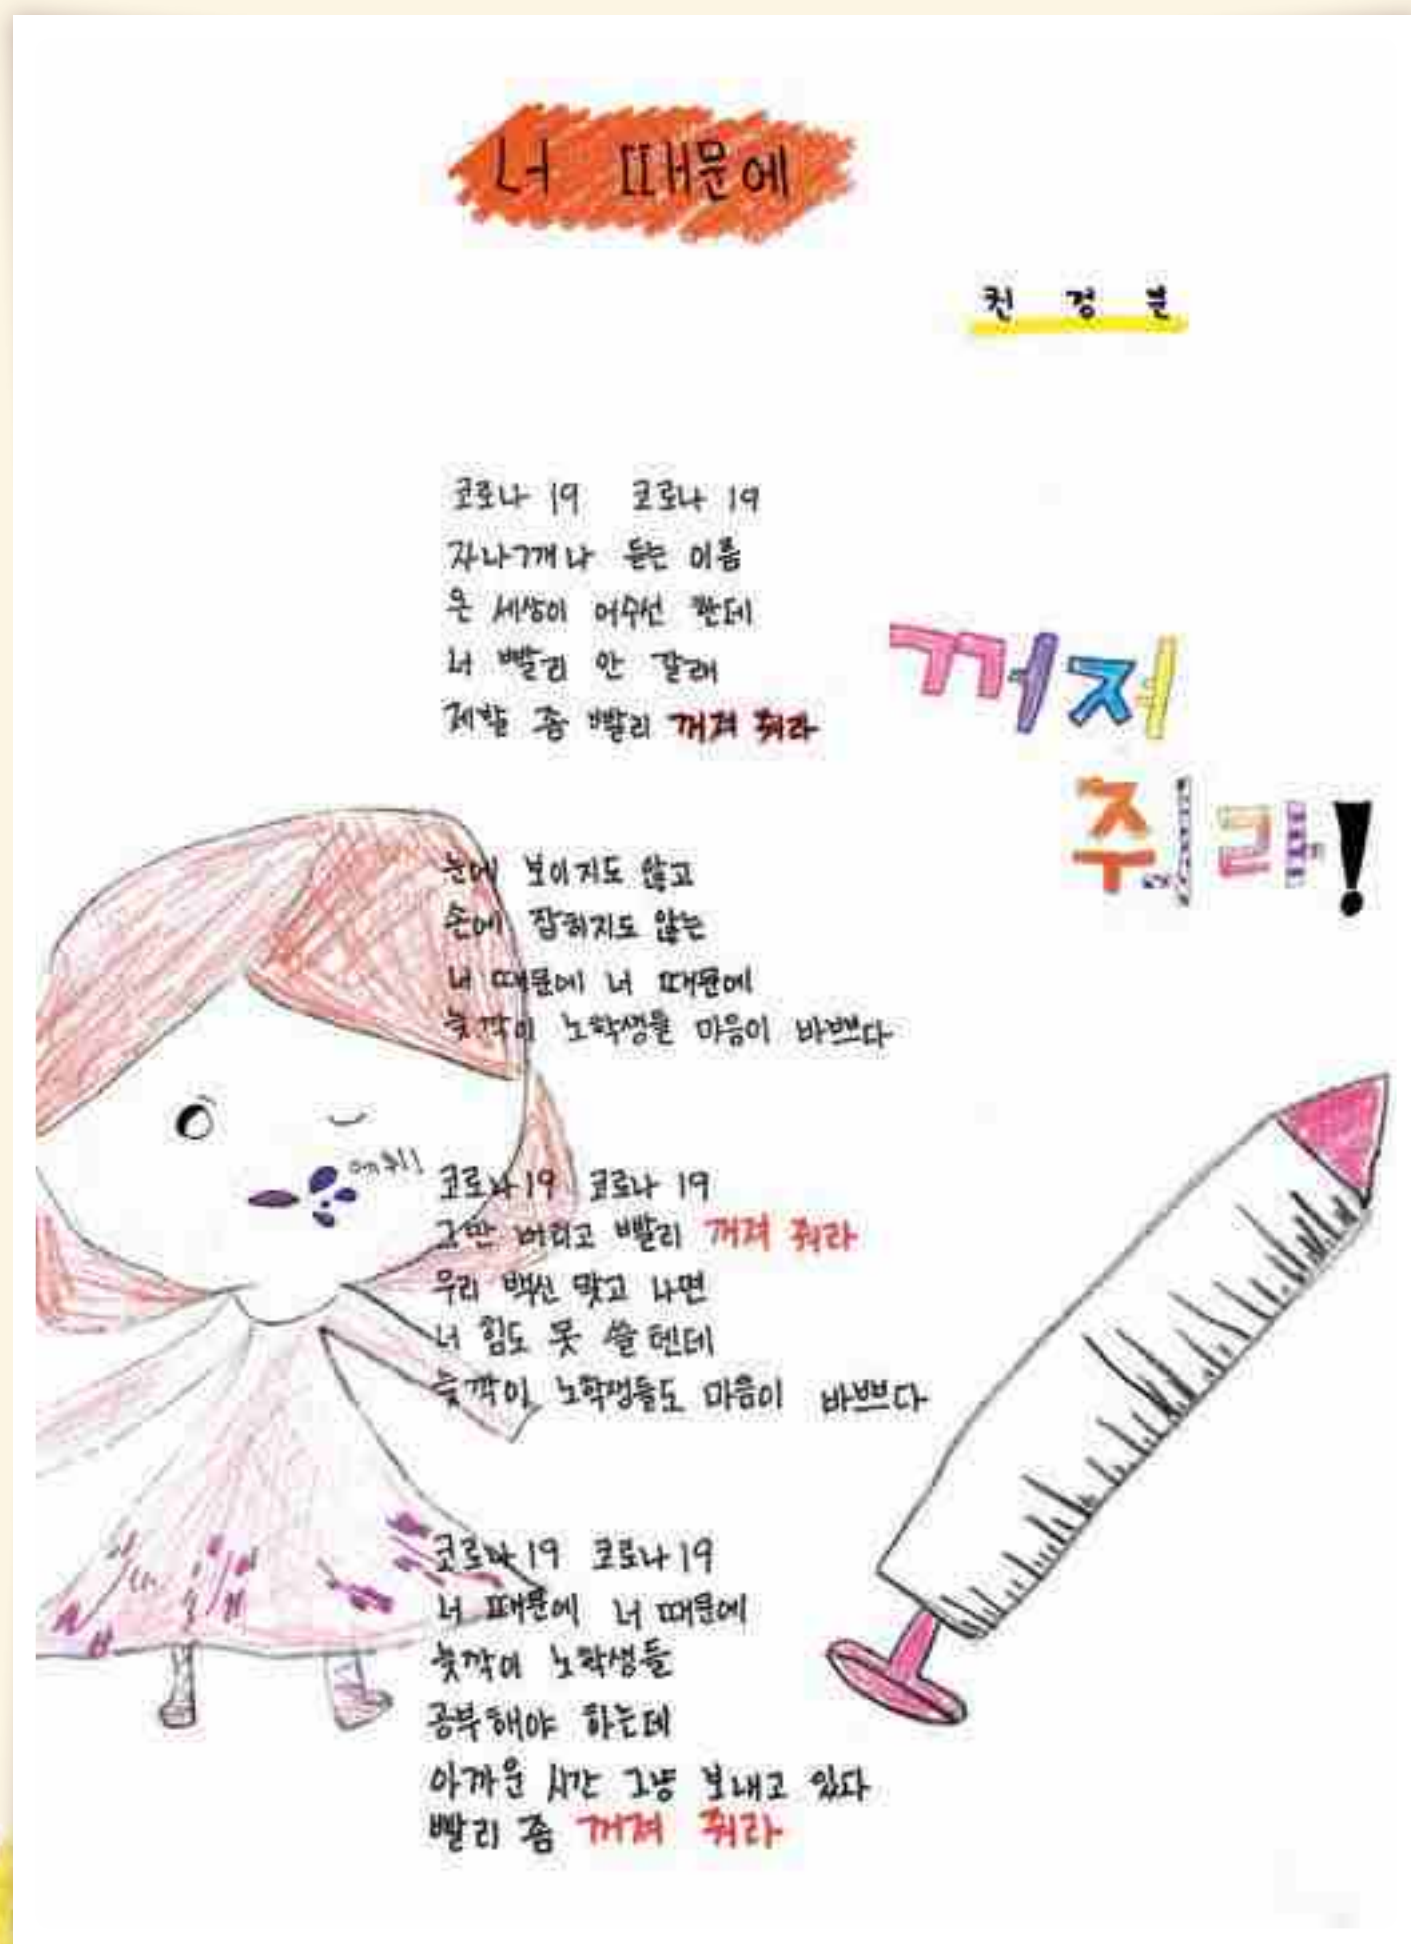 너 때문에
경분
코로나 19 코로나 19
자나깨나 듣는 이름
온 세상이 어수선 한데
너 빨리 안 갈래
제발 좀 빨리 꺼져 줘라
꺼저
줘라!
눈에 보이지도 않고
손에 잡히지도 않는
너 때문에 너 때문에
늦깍이 노학생들 마음이 바쁘다
에취!
코로나 19 코로나 19
그만 버티고 빨리 꺼져 줘라
우리 백신 맞고 나면
너 힘도 못 쓸 텐데
늦깍이 노학생들도 마음이 바쁘다
코로나 19 코로나 19
너 때문에 너 때문에
늦깍이 노학생들
공부해야 하는데
아까운 시간 그냥 보내고 있다
빨리 좀 꺼져 줘라